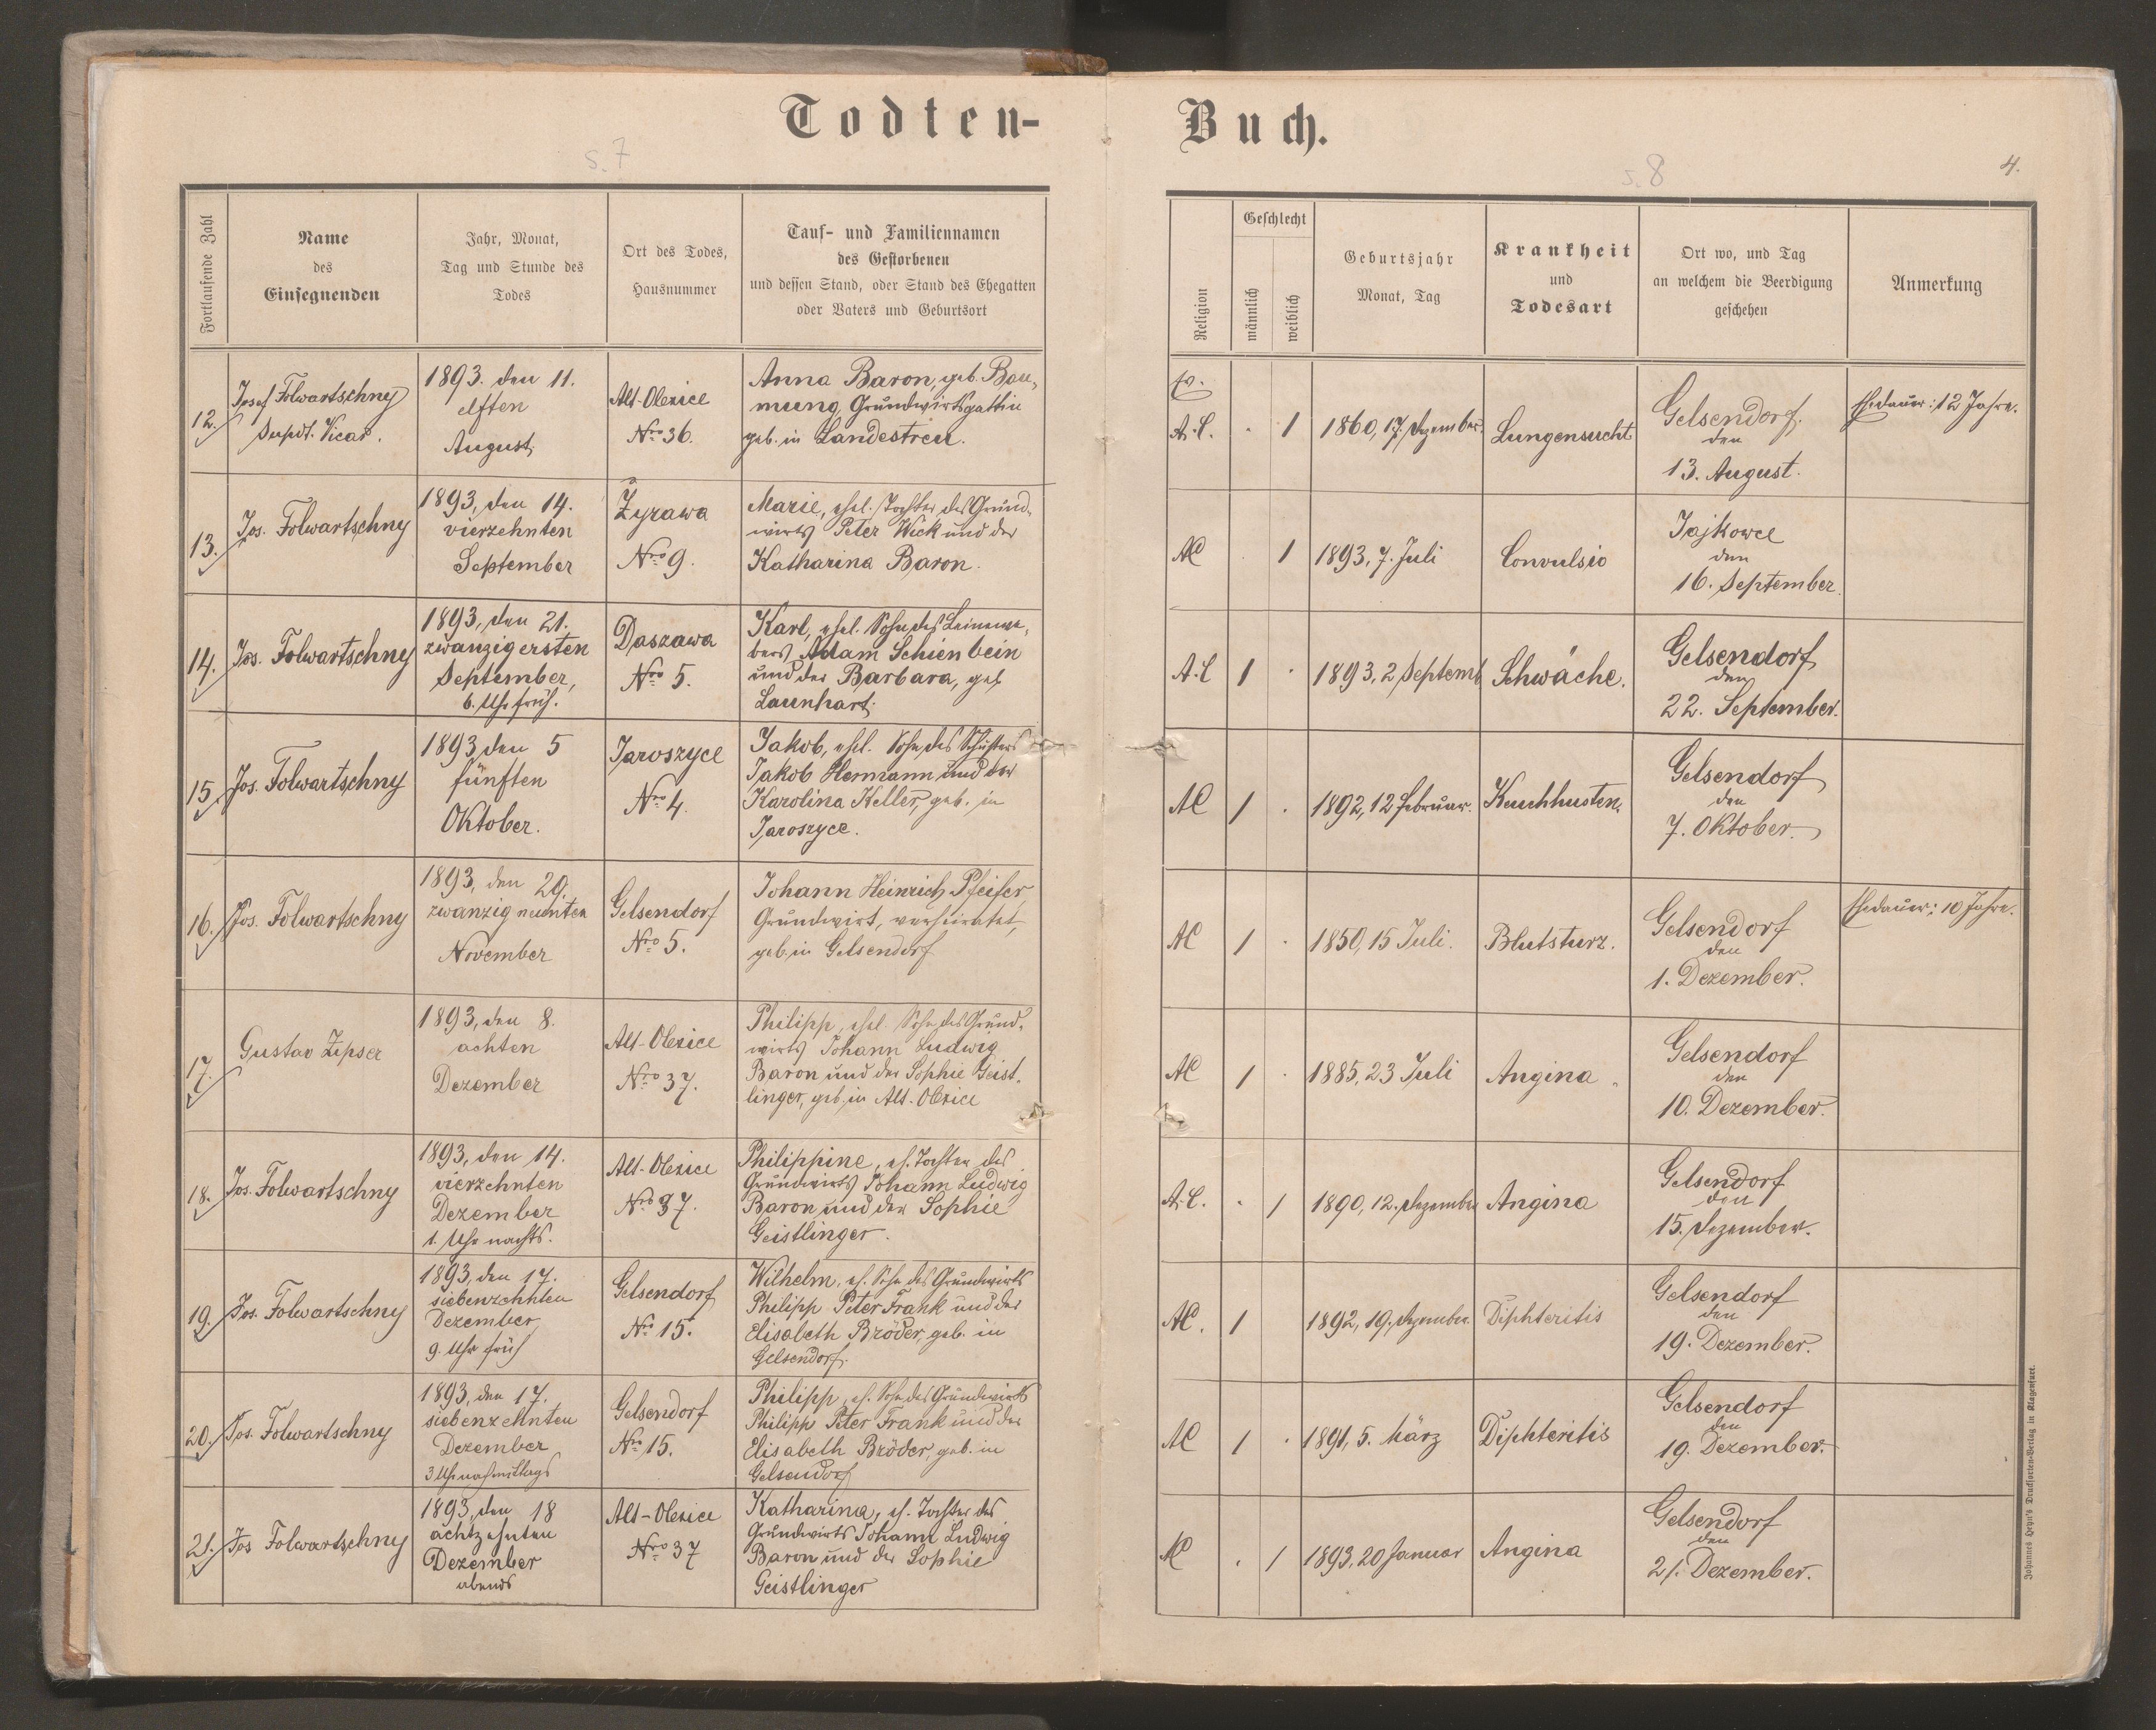 Todten-
Buch.
s. 7
s. 8
4.
Fortlaufende Zahl
Name
des
Einsegnenden
Jahr, Monat,
Tag und Stunde des
Todes
Ort des Todes,
Hausnummer
Tauf- und Familiennamen
des Gestorbenen
und dessen Stand, oder Stand des Ehegatten
oder Vaters und Geburtsort
Religion
Geschlecht
männlich
weiblich
Geburtsjahr
Monat, Tag
Krankheit
und
Todesart
Ort wo, und Tag
an welchem die Beerdigung
geschehen
Anmerkung
12.
Josef Folwartschny
Supdt. Vicar.
1893. den 11.
elften
August
Alt-Olexice
Nro 36.
Anna Baron, geb. Bau-
mung, Grundwirtsgattin
geb. in Landestreu.
Ev.
A.C.
. 1
1860, 17. Dezember.
Lungensucht
Gelsendorf.
den
13. August.
Ehedauer: 12 Jahre.
13.
Jos. Folwartschny
1893, den 14.
vierzehnten
September
Żyrawa
Nro 9.
Marie, ehel. Tochter des Grund-
wirts Peter Wick und der
Katharina Baron.
AC
. 1
1893, 7. Juli
Convulsio
Jajkowce
den
16. September.
14.
Jos. Folwartschny
1893, den 21.
zwanzigersten
September,
6. Uhr früh.
Daszawa
Nro 5.
Karl, ehel. Sohn des Leinewe-
bers Adam Schienbein
und der Barbara, geb
Launhart.
A.C
1 .
1893, 2 Septemb
Schwäche.
Gelsendorf
den
22. September.
15.
Jos. Folwartschny
1893 den 5
fünften
Oktober.
Jaroszyce
Nro 4.
Jakob, ehel. Sohn des Schusters
Jakob Hermann und der
Karolina Keller, geb. in
Jaroszyce.
AC
1 .
1892, 12 Februar.
Keuchhusten.
Gelsendorf
den
7. Oktober.
16.
Jos. Folwartschny
1893, den 29.
zwanzig neunten
November
Gelsendorf
Nro 5.
Johann Heinrich Pfeifer,
Grundwirt, verheiratet,
geb. in Gelsendorf
AC
1 .
1850, 15 Juli.
Blutsturz.
Gelsendorf
den
1. Dezember.
Ehedauer: 10 Jahre.
17.
Gustav Zipser
1893, den 8.
achten
Dezember
Alt-Olexice
Nro 37.
Philipp, ehel. Sohn des Grund-
wirts Johann Ludwig
Baron und der Sophie Geist-
linger, geb. in Alt-Olexice
AC
1 .
1885, 23 Juli
Angina
Gelsendorf
den
10. Dezember.
18.
Jos. Folwartschny
1893, den 14.
vierzehnten
Dezember
1. Uhr nachts.
Alt-Olexice
Nro 37.
Philippine, eh. Tochter des
Grundwirts Johann Ludwig
Baron und der Sophie
Geistlinger.
A.C.
. 1
1890, 12. Dezember
Angina
Gelsendorf
den
15. Dezember.
19.
Jos. Folwartschny
1893, den 17.
siebenzehnten
Dezember,
9. Uhr früh
Gelsendorf
Nro 15.
Wilhelm, eh. Sohn des Grundwirts
Philipp Peter Frank und der
Elisabeth Bröder, geb. in
Gelsendorf.
AC.
1
1892, 19. Dezember.
Diphteritis
Gelsendorf
den
19. Dezember.
20.
Jos. Folwartschny
1893, den 17.
siebenzehnten
Dezember
3 Uhr nachmittags
Gelsendorf
Nro 15.
Philipp, eh. Sohn des Grundwirts
Philipp Peter Frank und der
Elisabeth Bröder, geb. in
Gelsendorf
AC
1 .
1891, 5. März
Diphteritis
Gelsendorf
den
19. Dezember.
21.
Jos Folwartschny
1893, den 18
achtzehnten
Dezember
abends
Alt-Olexice
Nro 37
Katharina, eh. Tochter des
Grundwirts Johann Ludwig
Baron und der Sophie
Geistlinger
AC
. 1
1893, 20 Januar
Angina
Gelsendorf
den
21. Dezember.
Johannes Heyn's Drucksorten-Verlag in Klagenfurt.